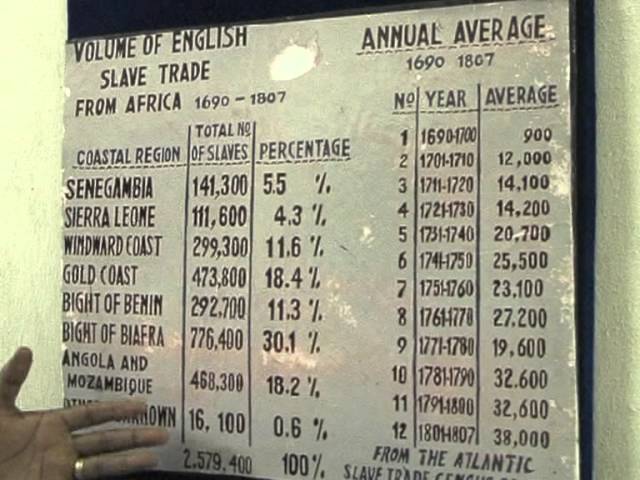 VOLUME OF ENGLISH
SLAVE TRADE
FROM AFRICA 1690-1807
COASTAL REGION TOTAL NO OF SLAVES PERCENTAGE
SENEGAMBIA 141,300 5.5 %
SIERRA LEONE 111,600 4.3 %
WINDWARD COAST 299,300 11.6 %
GOLD COAST 473,800 18.4 %
BIGHT OF BENIN 292,700 11.3 %
BIGHT OF BIAFRA 776,400 30.1 %
ANGOLA AND
MOZAMBIQUE 468,300 18.2 %
16,100 0.6 %
2,579,400 100%
ANNUAL AVERAGE
1690 1807
NO YEAR AVERAGE
1 1690-1700 900
2 1701-1710 12,000
3 1711-1720 14,100
4 1721-1730 14,200
5 1731-1740 20,700
6 1741-1750 25,500
7 1751-1760 23,100
8 1761-1770 27.200
9 1771-1780 19,600
10 1781-1790 32.600
11 1791-1800 32,600
12 1801-1807 38,000
FROM THE ATLANTIC
SLAVE TRADE CENSUS